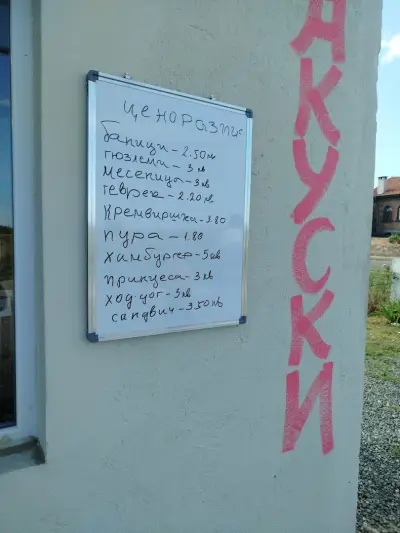 ценоразпис
баници - 2.50 лв
гюзлеми - 3 лв
месеници - 3 лв
геврек - 2.20 лв.
кремвиршки - 1.80
пура - 1.80
хамбургер - 5 лв
принцеса - 3 лв
ход-дог - 3 лв
сандвич - 3.50 лв
АКУСКИ